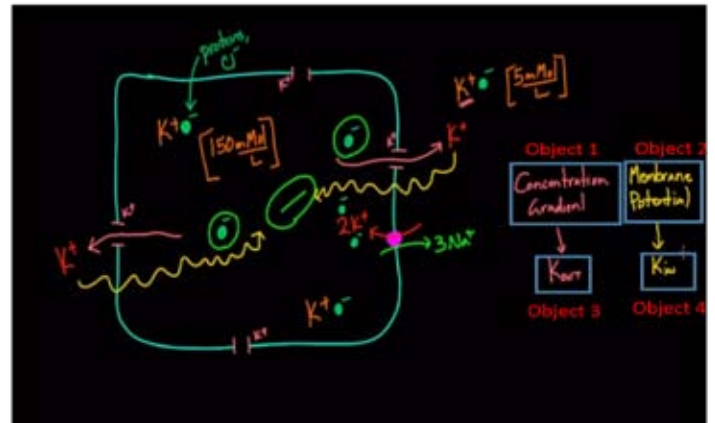 protons,
Cl⁻
K⁺
K⁺ ⁻
[150 mMol/L]
K⁺ ⁻ [5 mMol/L]
K⁺
K⁺
⁻
K⁺
K⁺
⁻
⁻
⁻
2K⁺
⁻
3Na⁺
K⁺ ⁻
K⁺
Object 1
Object 2
Concentration
Gradient
Membrane
Potential
Kout
Kin
Object 3
Object 4